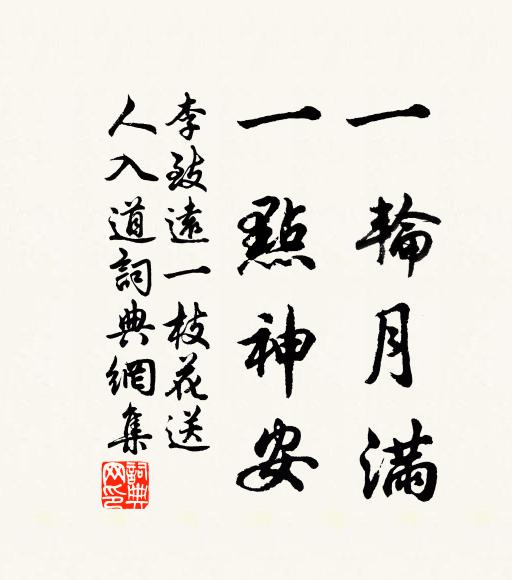 一輪月滿
一點神安
李致遠一枝花送
人入道詞典網集
詞典
网印